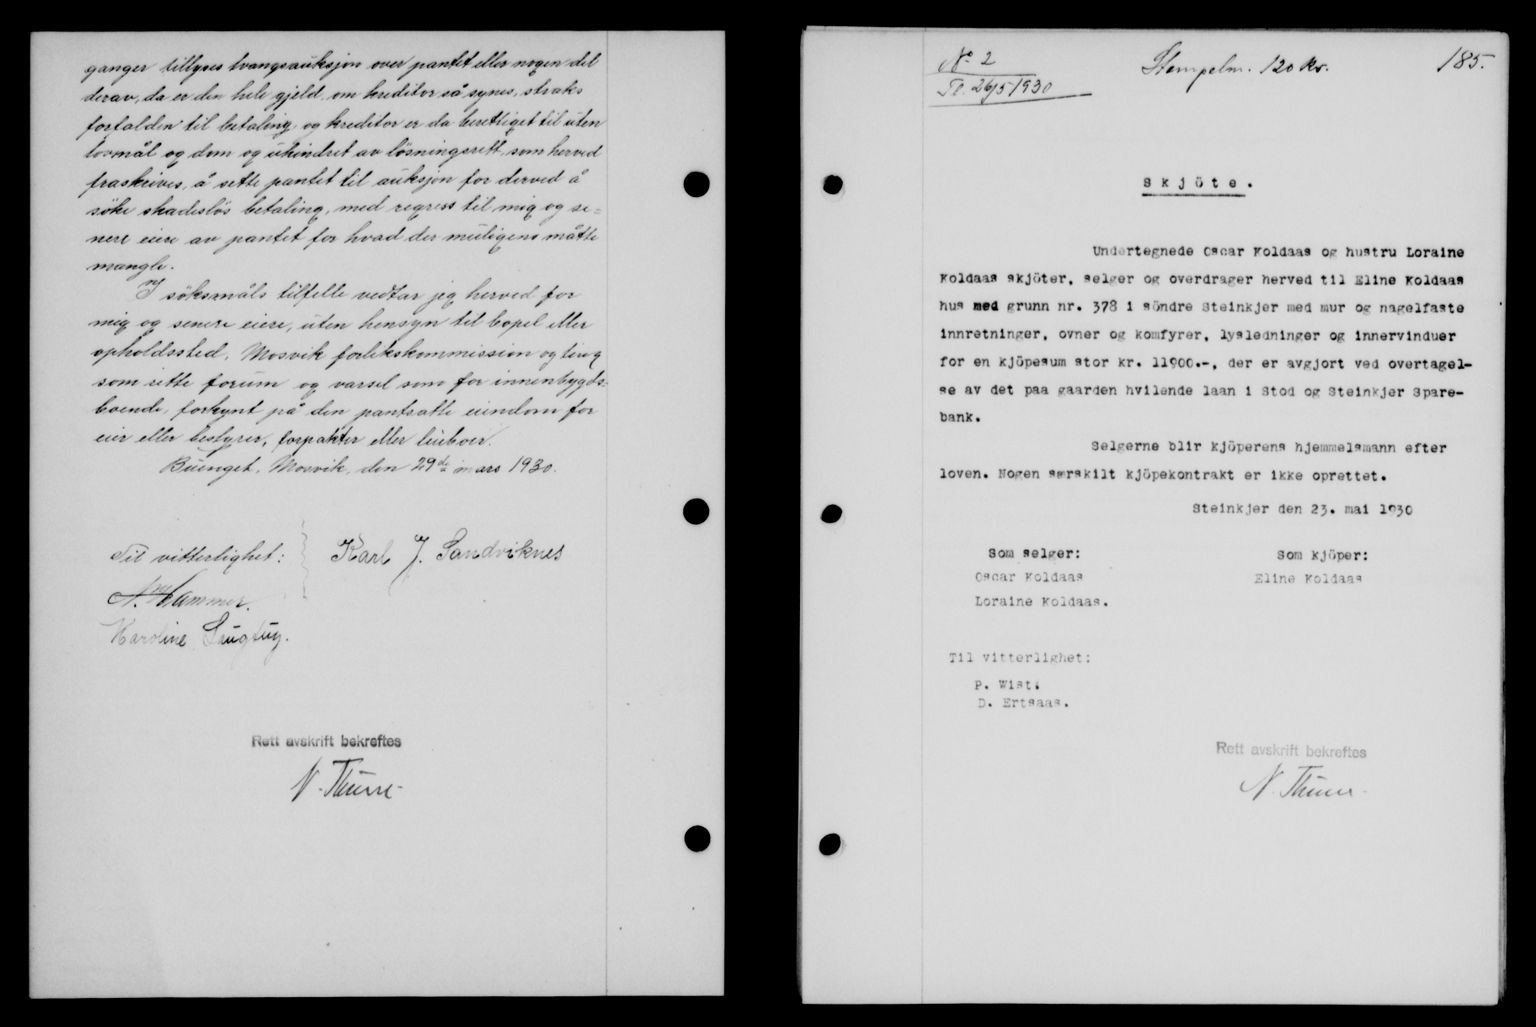 ganger tillyses tvangsauksjon over pantet eller nogen del
derav, da er den hele gjeld, om kreditor så synes, straks
forfalden til betaling og kreditor er da berettiget til uten
lovmål og dom og uhindret av lösningsrett, som herved
fraskrives, å sette pantet til auksjon for derved å
söke skadeslös betaling, med regress til mig og se=
nere eiere av pantet for hvad der muligens måtte
mangle.
I söksmåls tilfelle vedtar jeg herved for
mig og senere eiere, uten hensyn til bopel eller
opholdssted, Mosvik forlikskommission og ting
som rette forum og varsel som for innenbygds-
boende, forkynt på den pantsatte eiendom for
eier eller bestyrer, forpakter eller leieboer.
Buenget, Mosvik, den 29de mars 1930.
Til vitterlighet:
Karl J. Sandviknes
N. Hammer.
Karoline
Rett avskrift bekreftes
N. Thune
No 2
Stempelm. 120 kr.
185.
To. 26/5 1930
Skjöte.
Undertegnede Oscar Koldaas og hustru Loraine
Koldaas skjöter, selger og overdrager herved til Eline Koldaas
hus med grunn nr. 378 i söndre Steinkjer med mur og nagelfaste
innretninger, ovner og komfyrer, lysledninger og innervinduer
for en kjöpesum stor kr. 11900.-, der er avgjort ved overtagel-
se av det paa gaarden hvilende laan i Stod og Steinkjer Spare-
bank.
Selgerne blir kjöperens hjemmelsmann efter
loven. Nogen særskilt kjöpekontrakt er ikke oprettet.
Steinkjer den 23. mai 1930
Som selger:
Som kjöper:
Oscar Koldaas
Eline Koldaas
Loraine Koldaas.
Til vitterlighet:
P. Wist.
D. Ertsaas.
Rett avskrift bekreftes
N. Thune